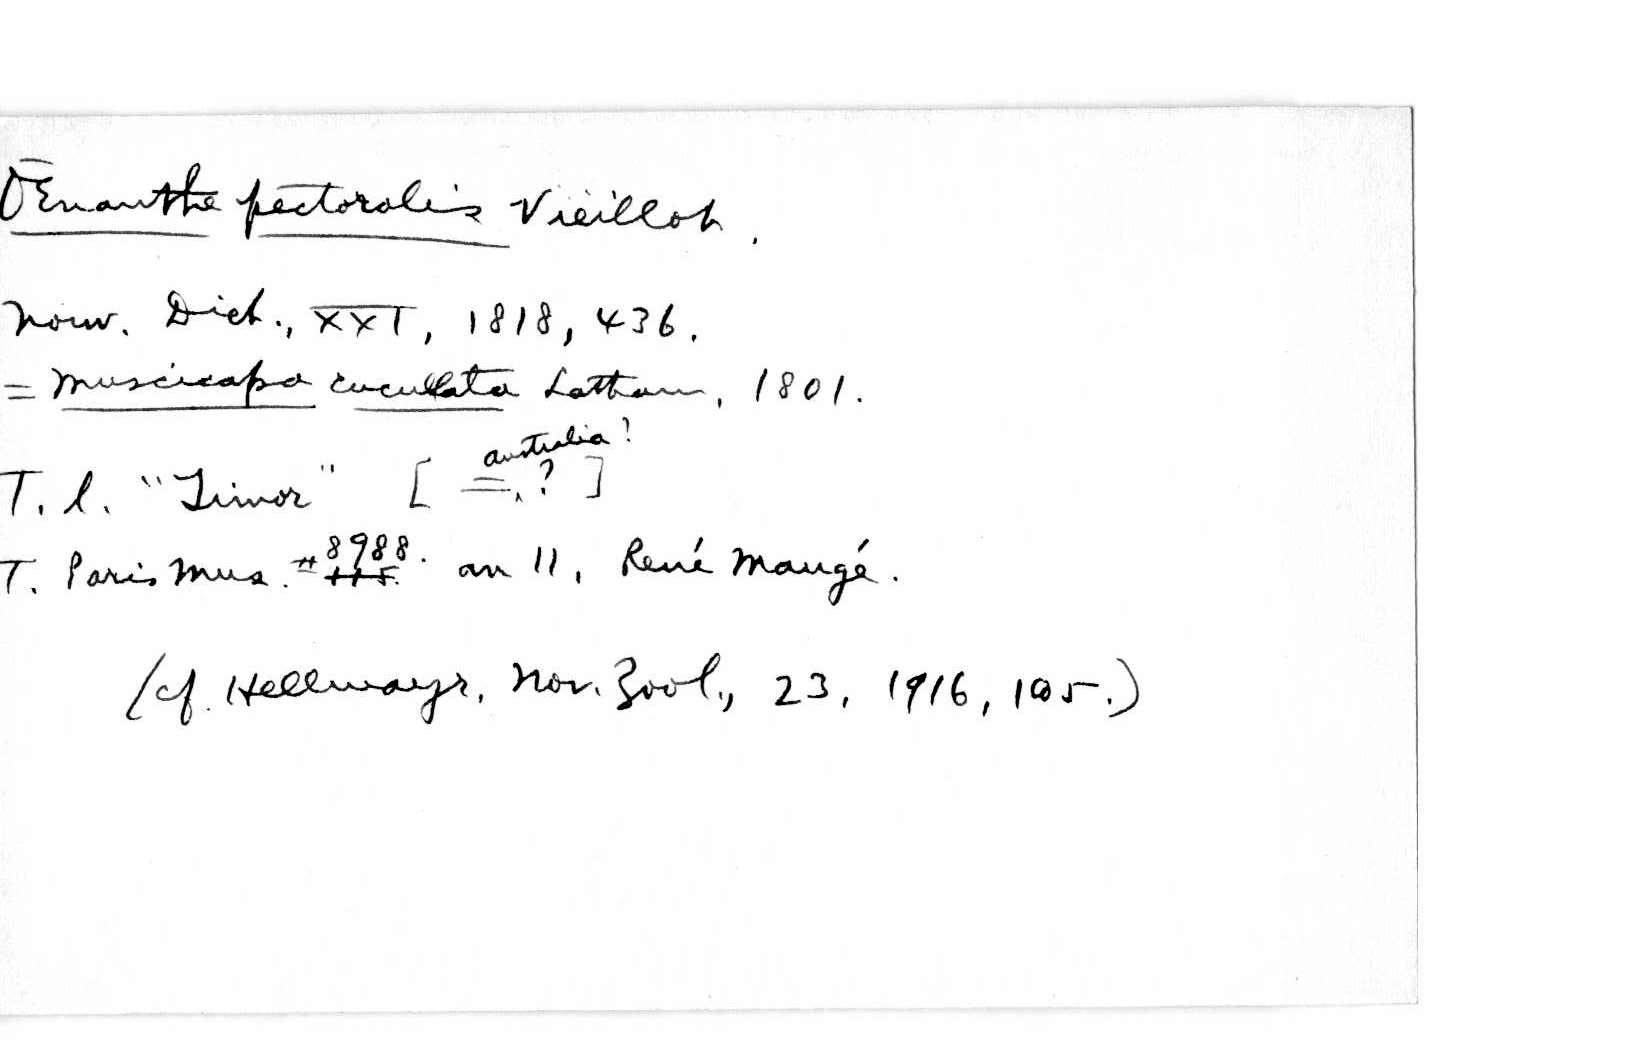 Œnanthe pectoralis Vieillot.
Nouv. Dict., XXI, 1818, 436.
= Muscicapa cucullata Latham, 1801.
T. l. "Timor" [= Australia? ?]
T. Paris Mus. # 8988. an 11, René Maugé.
(cf. Hellmayr, Nov. Zool., 23, 1916, 105.)